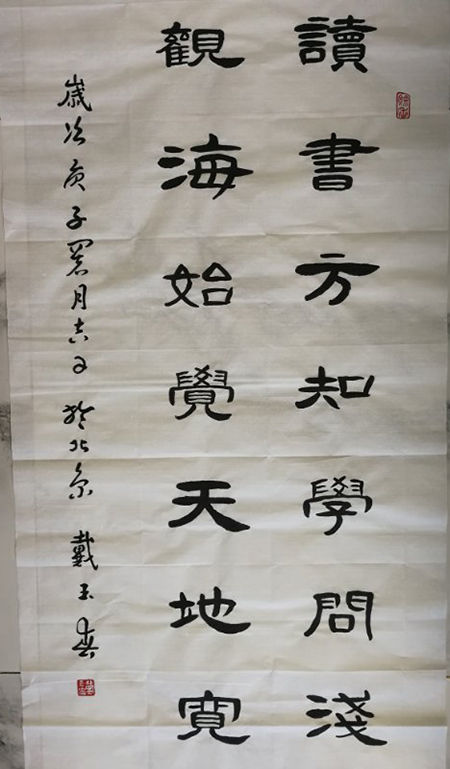 讀書方知學問淺
觀海始覺天地寬
歲次庚子署月吉日於北京 戴玉春